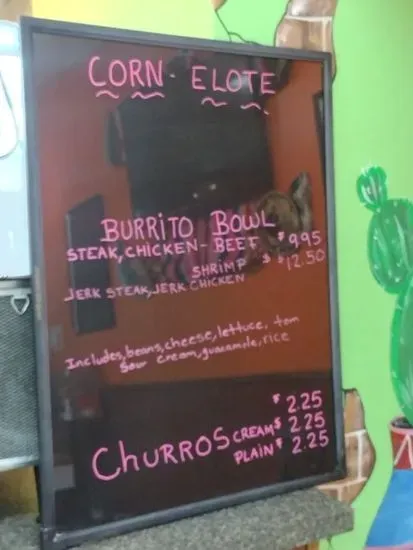 CORN - ELOTE
BURRITO BOWL
STEAK, CHICKEN - BEEF $9.95
SHRIMP $ $12.50
JERK STEAK, JERK CHICKEN
Includes, beans, cheese, lettuce, tom
Sour cream, guacamole, rice
$ 2.25
CHURROS CREAM $ 2.25
PLAIN $ 2.25